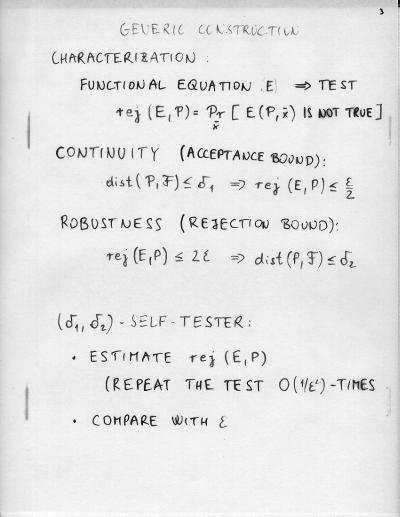 3
GENERIC CONSTRUCTION
CHARACTERIZATION :
FUNCTIONAL EQUATION (E) ⇒ TEST
rej (E, P) = Pr_x̄ [ E(P, x̄) IS NOT TRUE ]
CONTINUITY (ACCEPTANCE BOUND):
dist (P, F) ≤ δ₁ ⇒ rej (E, P) ≤ ε/2
ROBUSTNESS (REJECTION BOUND):
rej (E, P) ≤ 2ε ⇒ dist (P, F) ≤ δ₂
(δ₁, δ₂) - SELF - TESTER :
• ESTIMATE rej (E, P)
(REPEAT THE TEST O(1/ε²) - TIMES
• COMPARE WITH ε